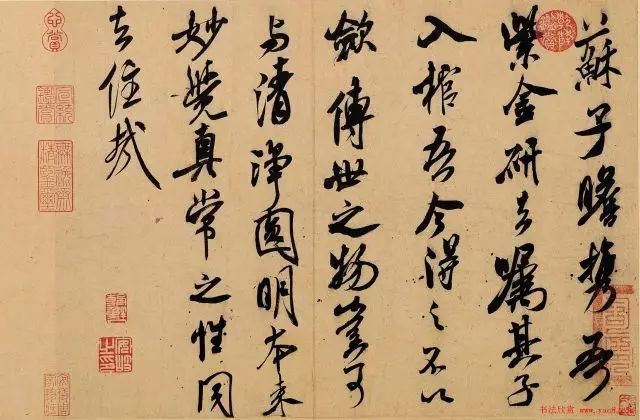 蘇子瞻携吾
紫金研去嘱其子
入棺吾今得之不以
斂傳世之物豈可
与清淨圓明本来
妙覺真常之性同
去住哉
书法欣赏